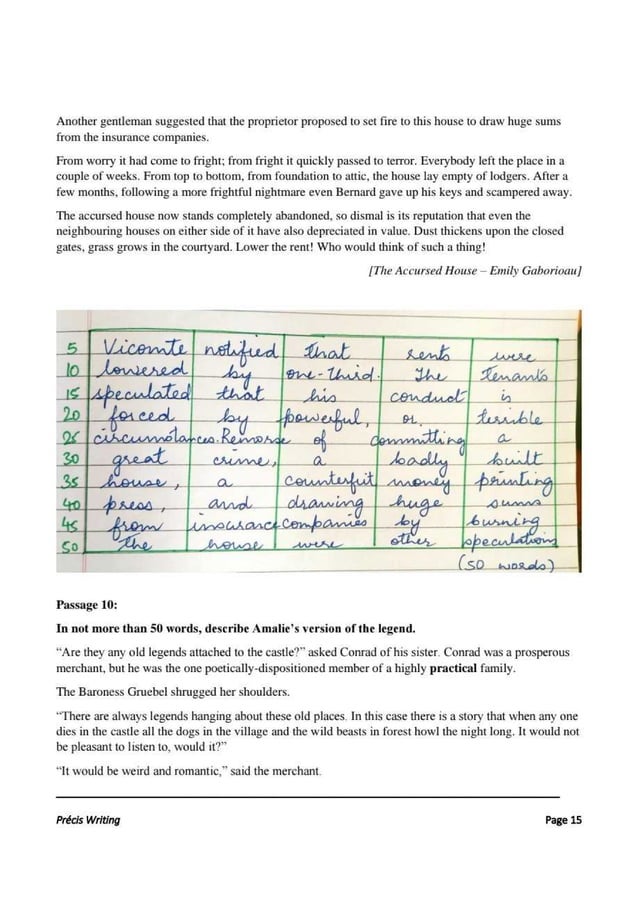 Another gentleman suggested that the proprietor proposed to set fire to this house to draw huge sums
from the insurance companies.
From worry it had come to fright; from fright it quickly passed to terror. Everybody left the place in a
couple of weeks. From top to bottom, from foundation to attic, the house lay empty of lodgers. After a
few months, following a more frightful nightmare even Bernard gave up his keys and scampered away.
The accursed house now stands completely abandoned, so dismal is its reputation that even the
neighbouring houses on either side of it have also depreciated in value. Dust thickens upon the closed
gates, grass grows in the courtyard. Lower the rent! Who would think of such a thing!
[The Accursed House – Emily Gaborioau]
5 Vicomte notified that rents were
10 lowered by one-third. The Tenants
15 speculated that his conduct is
20 forced by powerful, or terrible
25 circumstances. Remorse of committing a
30 great crime, a badly built
35 house, a counterfuit money printing
40 press, and drawing huge sums
45 from insurance companies by burning
50 the house were other speculations
(50 words)
Passage 10:
In not more than 50 words, describe Amalie’s version of the legend.
“Are they any old legends attached to the castle?” asked Conrad of his sister. Conrad was a prosperous
merchant, but he was the one poetically-dispositioned member of a highly practical family.
The Baroness Gruebel shrugged her shoulders.
“There are always legends hanging about these old places. In this case there is a story that when any one
dies in the castle all the dogs in the village and the wild beasts in forest howl the night long. It would not
be pleasant to listen to, would it?”
“It would be weird and romantic,” said the merchant.
Précis Writing Page 15